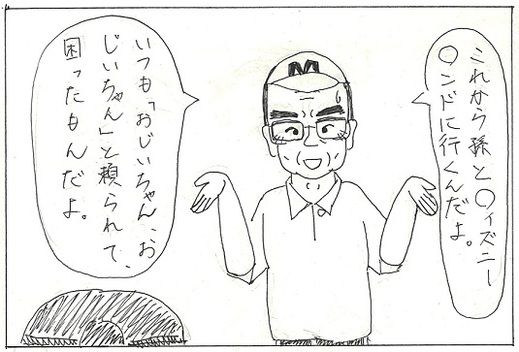 これから孫と〇ィズニー
〇ンドに行くんだよ。
M
いつも「おじいちゃん、お
じいちゃん」と頼られて、
困ったもんだよ。